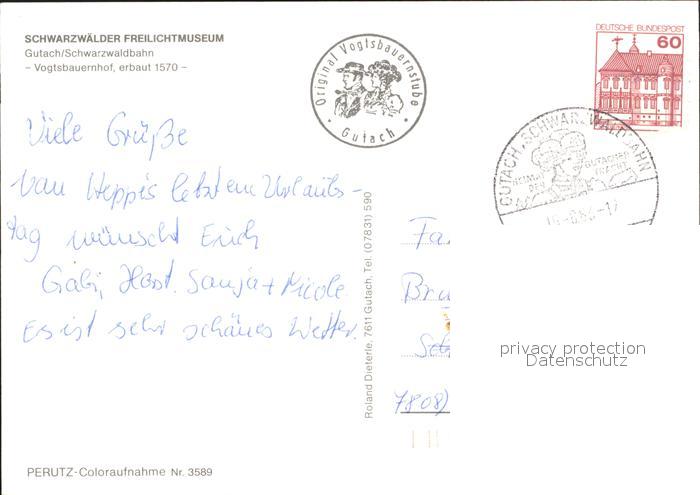 SCHWARZWÄLDER FREILICHTMUSEUM
Gutach/Schwarzwaldbahn
– Vogtsbauernhof, erbaut 1570 –
Original Vogtsbauernstube
· Gutach ·
DEUTSCHE BUNDESPOST
60
GUTACH, SCHWARZWALDBAHN
HEIMAT DER
GUTACHER TRACHT
Viele Grüße
Van letztem Urlaubs-
tag wünscht Euch
Gabi, Horst, Sanja + Nicole
Es ist sehr schönes Wetter.
Roland Dieterle, 7611 Gutach, Tel. (07831) 590
Fa
Bru
7808)
privacy protection
Datenschutz
PERUTZ-Coloraufnahme Nr. 3589